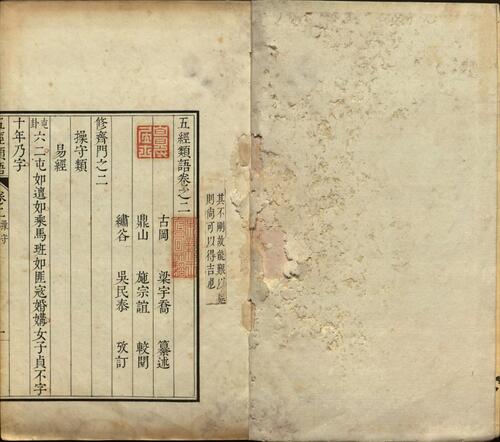 其不剛故能艱以
則尚可以得吉也
五經類語卷之二
古岡 梁宇喬 纂述
鼎山 施宗誼 較閱
繡谷 吳民泰 攷訂
修齊門之二
操守類
易經
屯卦六二屯如邅如乘馬班如匪寇婚媾女子貞不字
十年乃字
五經類語 卷之二 操守 一